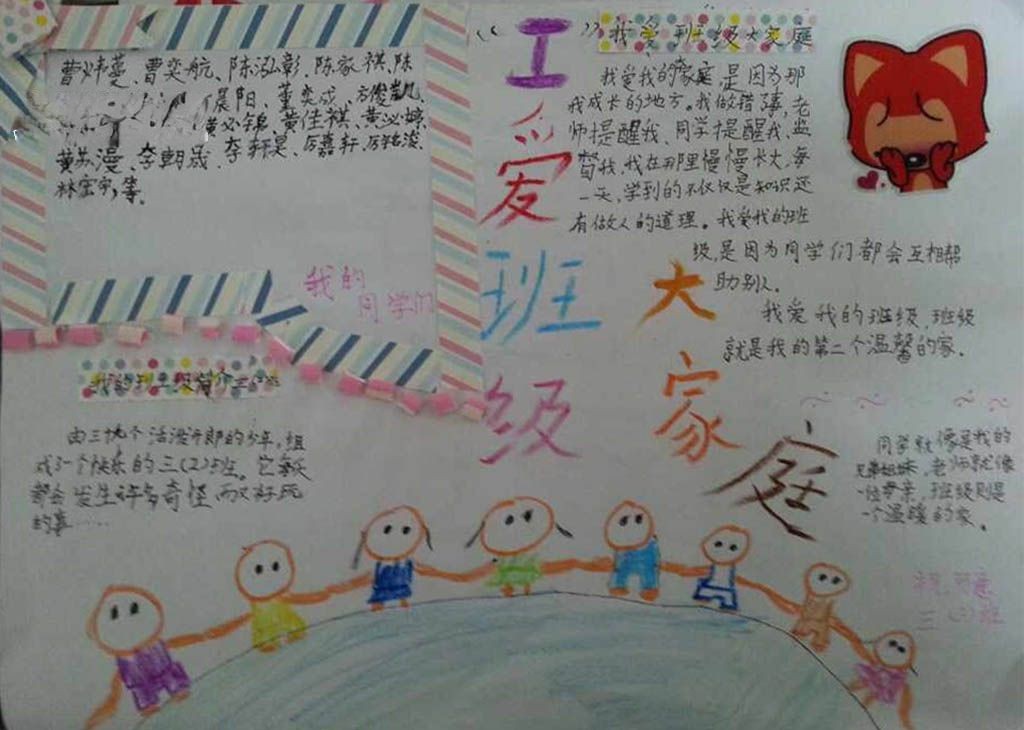 曹炜蔓、曹奕航、陈泓彰、陈家祺、陈
晨阳、董奕成、方俊凯、
黄必锦、黄佳祺、黄必婷、
黄苏漫、李朝晟、李轩昊、厉嘉轩、厉铭浚、
林宏宇,等。
我的
同学们
“工
爱
班
级
大
家
庭
”我爱班级大家庭
我爱我的家庭是因为那
我成长的地方。我做错事,老
师提醒我、同学提醒我、监
督我,我在那里慢慢长大,每
一天,学到的不仅仅是知识还
有做人的道理。我爱我的班
级,是因为同学们都会互相帮
助别人。
我爱我的班级,班级
就是我的第二个温馨的家。
我的班级简介
由三十九个活泼开朗的少年,组
成了一个快乐的三(2)班。它每天
都会发生许多奇怪,而又好玩
的事……
同学就像是我的
兄弟姐妹,老师就像
一位母亲,班级则是
一个温暖的家。
三(2)班